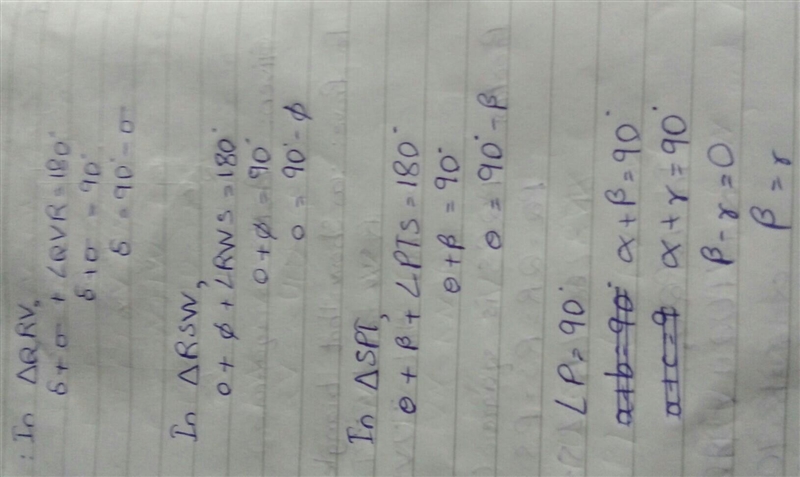 : In ΔQRV,
δ + σ + ∠QVR = 180°
δ + σ = 90°
δ = 90° - σ
In ΔRSW,
o + ϕ + ∠RWS = 180°
o + ϕ = 90°
o = 90° - ϕ
In ΔSPT,
θ + β + ∠PTS = 180°
θ + β = 90°
θ = 90° - β
∠P = 90°
a+b=90° α + β = 90°
a+c=9 α + r = 90°
β - r = 0
β = r